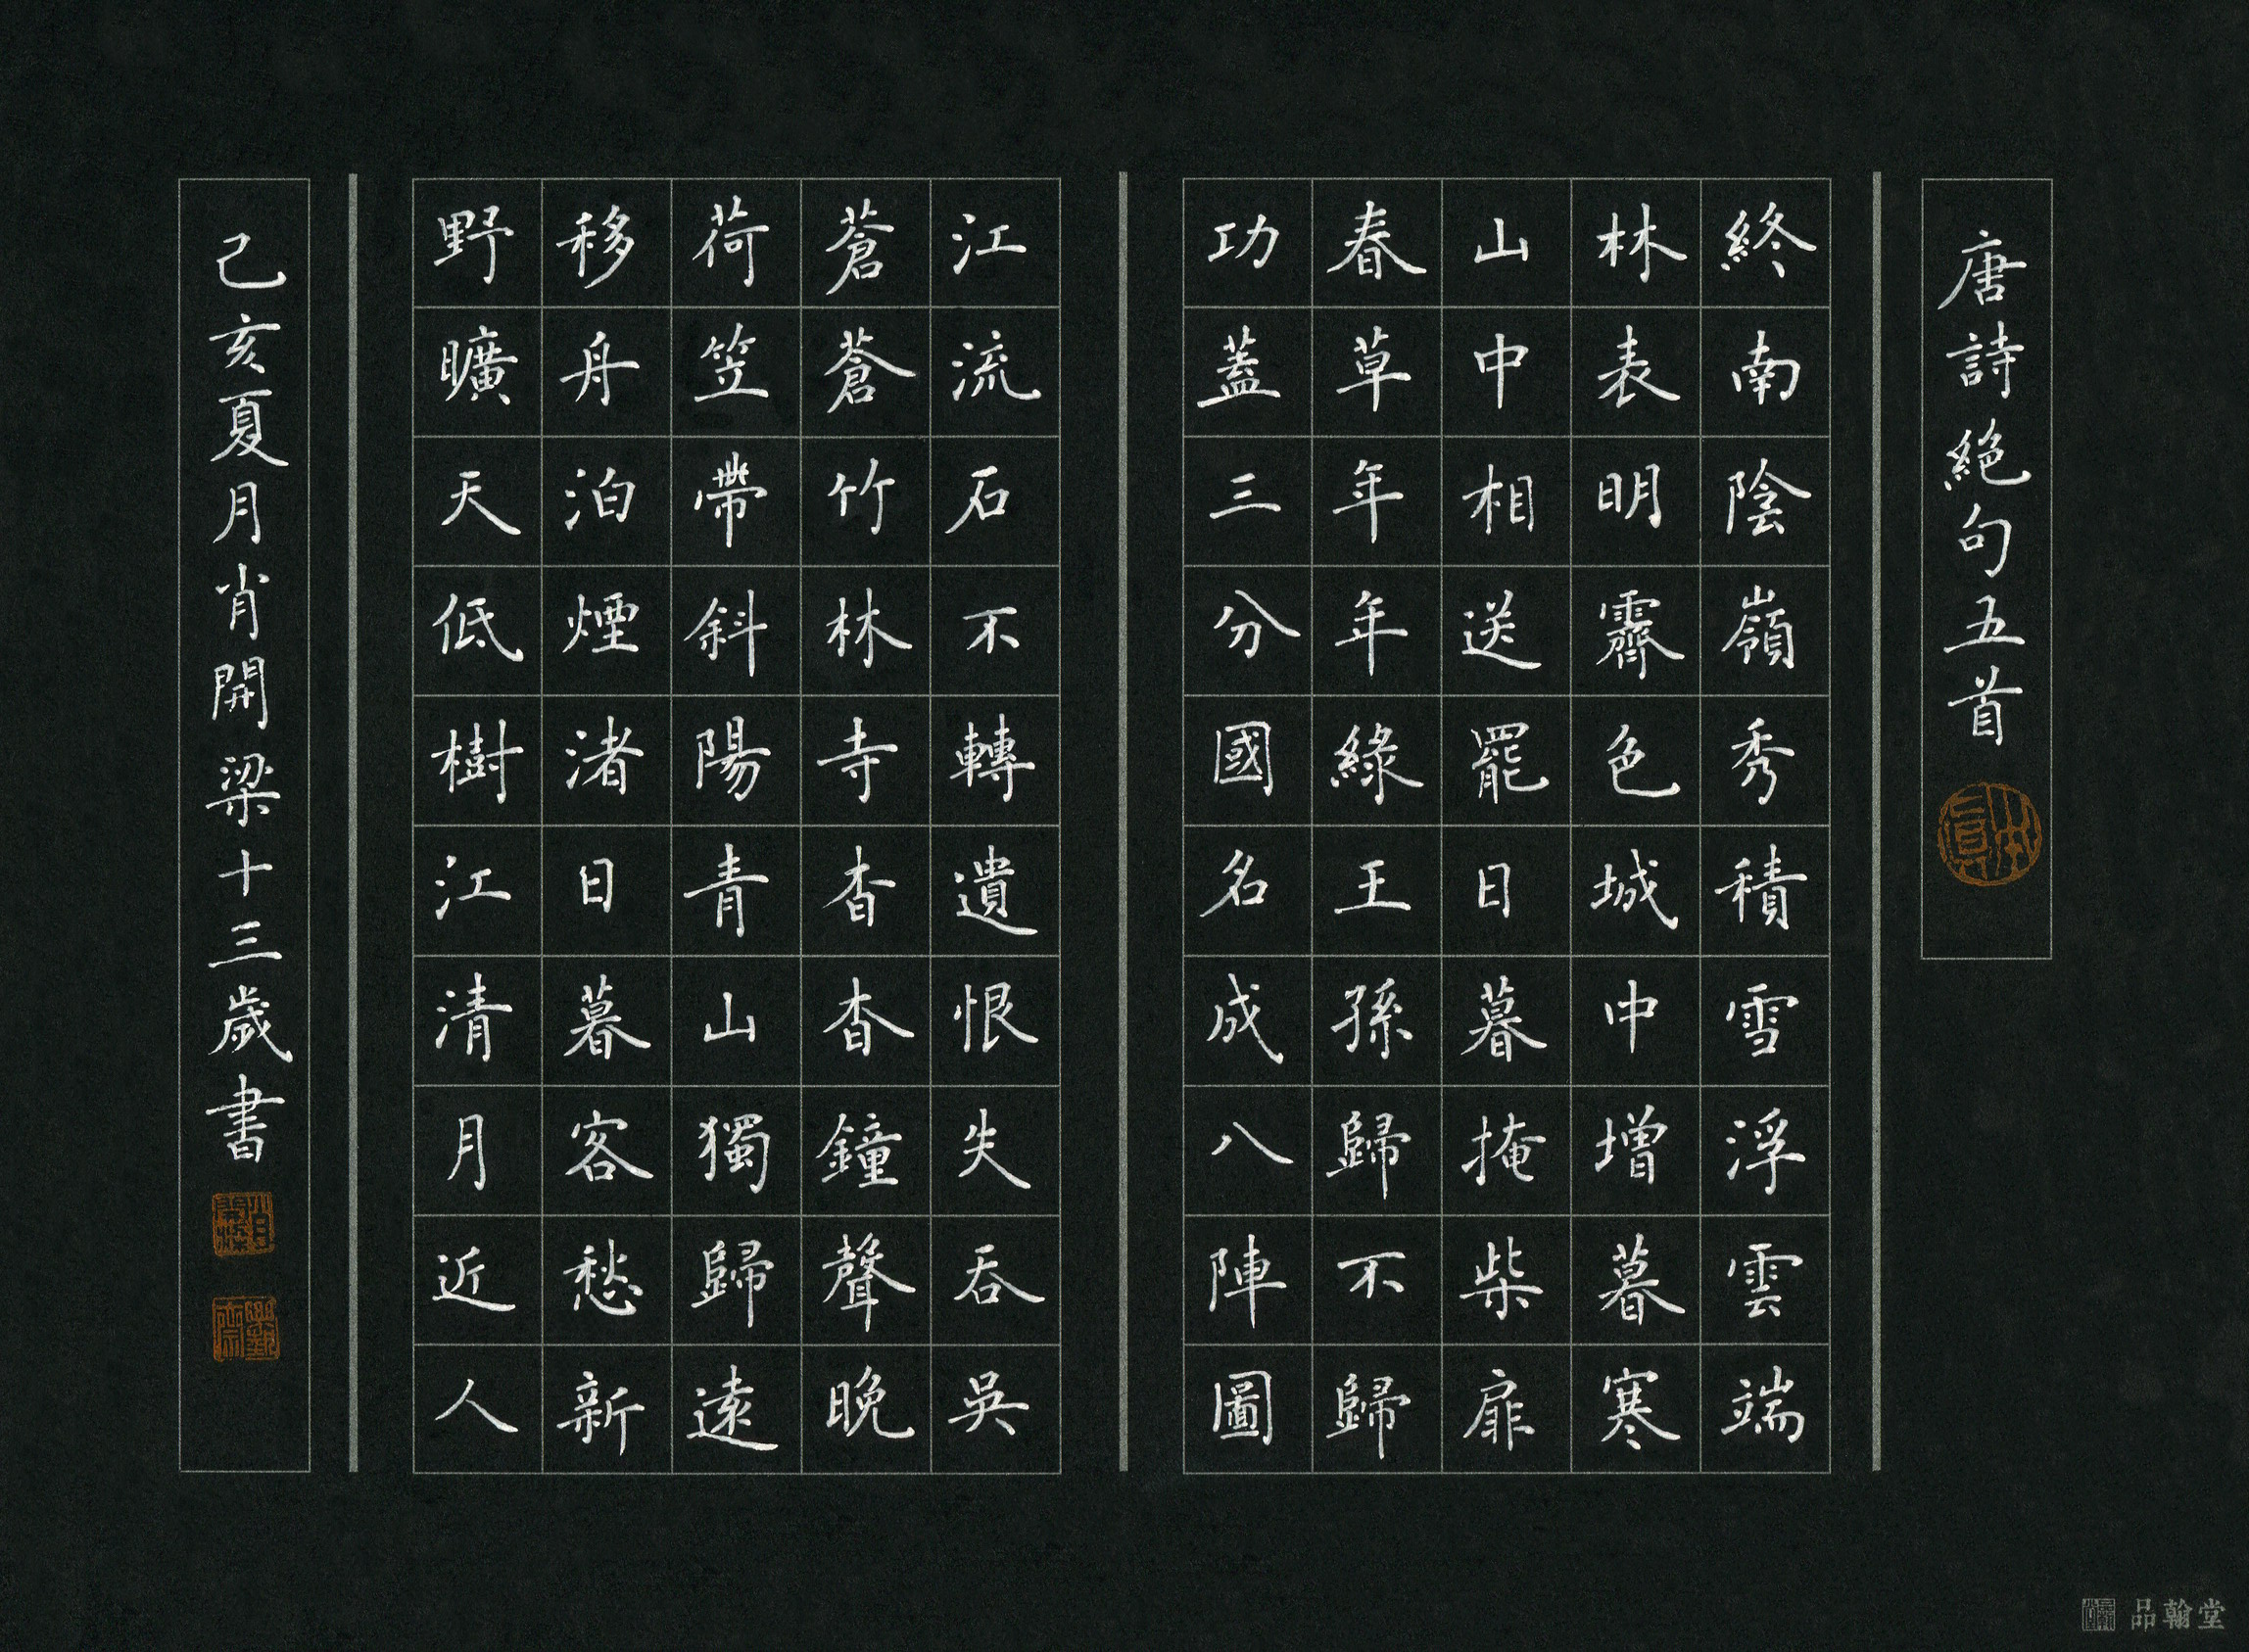 唐詩絕句五首
終南陰嶺秀積雪浮雲端
林表明霽色城中增暮寒
山中相送罷日暮掩柴扉
春草年年綠王孫歸不歸
功蓋三分國名成八陣圖
江流石不轉遺恨失吞吳
蒼蒼竹林寺杳杳鐘聲晚
荷笠帶斜陽青山獨歸遠
移舟泊煙渚日暮客愁新
野曠天低樹江清月近人
己亥夏月肖開梁十三歲書
品翰堂